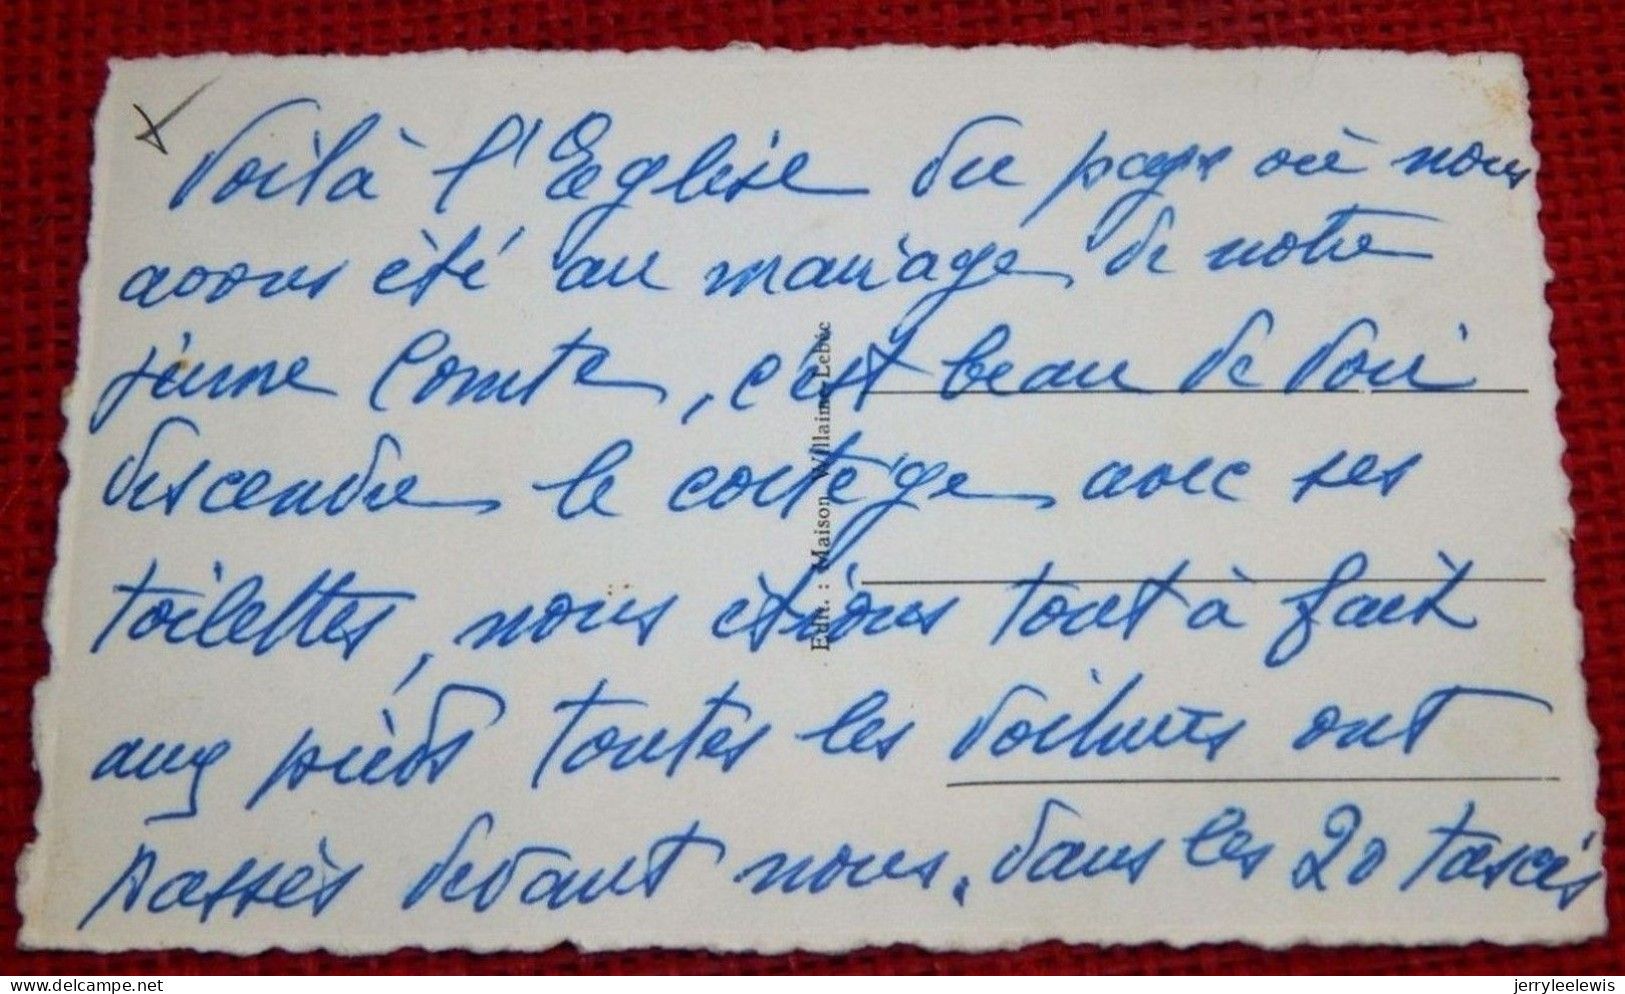 Voilà l'Eglise du pays où nous
avons èté au mariage de notre
jeune Comte, c'est beau de voir
descendre le cortège avec ses
toilettes, nous ètions tout à fait
aux pieds toutes les voitures ont
passès devant nous, dans les 20
Edit. : Maison Willaime-Lebec
delcampe.net
jerryleelewis